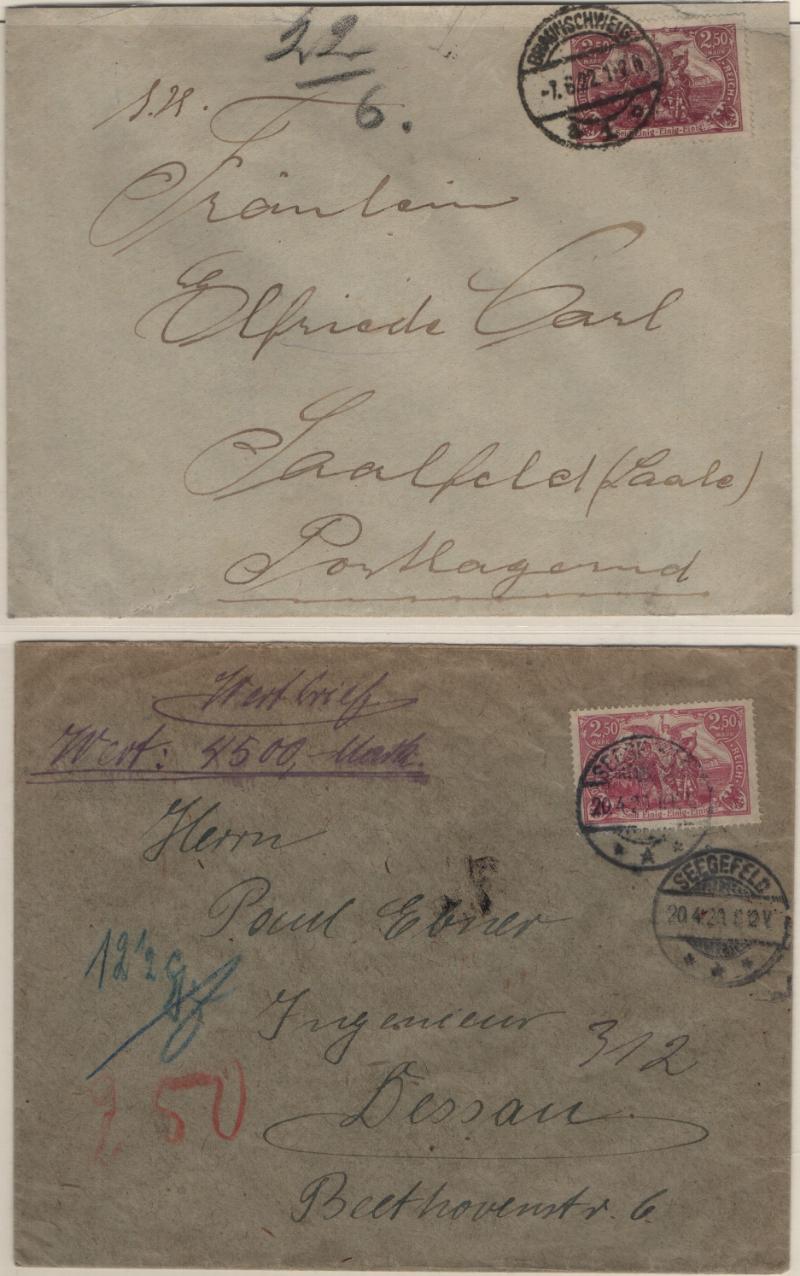 22
6.
BRAUNSCHWEIG
-7.6.22.1-2N
* 1 *
2.50 2.50
MARK
REICH
Seid Einig-Einig-Einig!
Fräulein
Elfriede Carl
Saalfeld (Saale)
Postlagernd
Wertbrief
Wert: 4500,- Mark.
2.50 2.50
MARK MARK
REICH
Seid Einig-Einig-Einig!
20.4.20
Herrn
SEEGEFELD
Paul Ebner
20.4.20. 8-12 V.
12 1/2 g
Ingenieur
312
2 50
Dessau
Beethovenstr. 6.